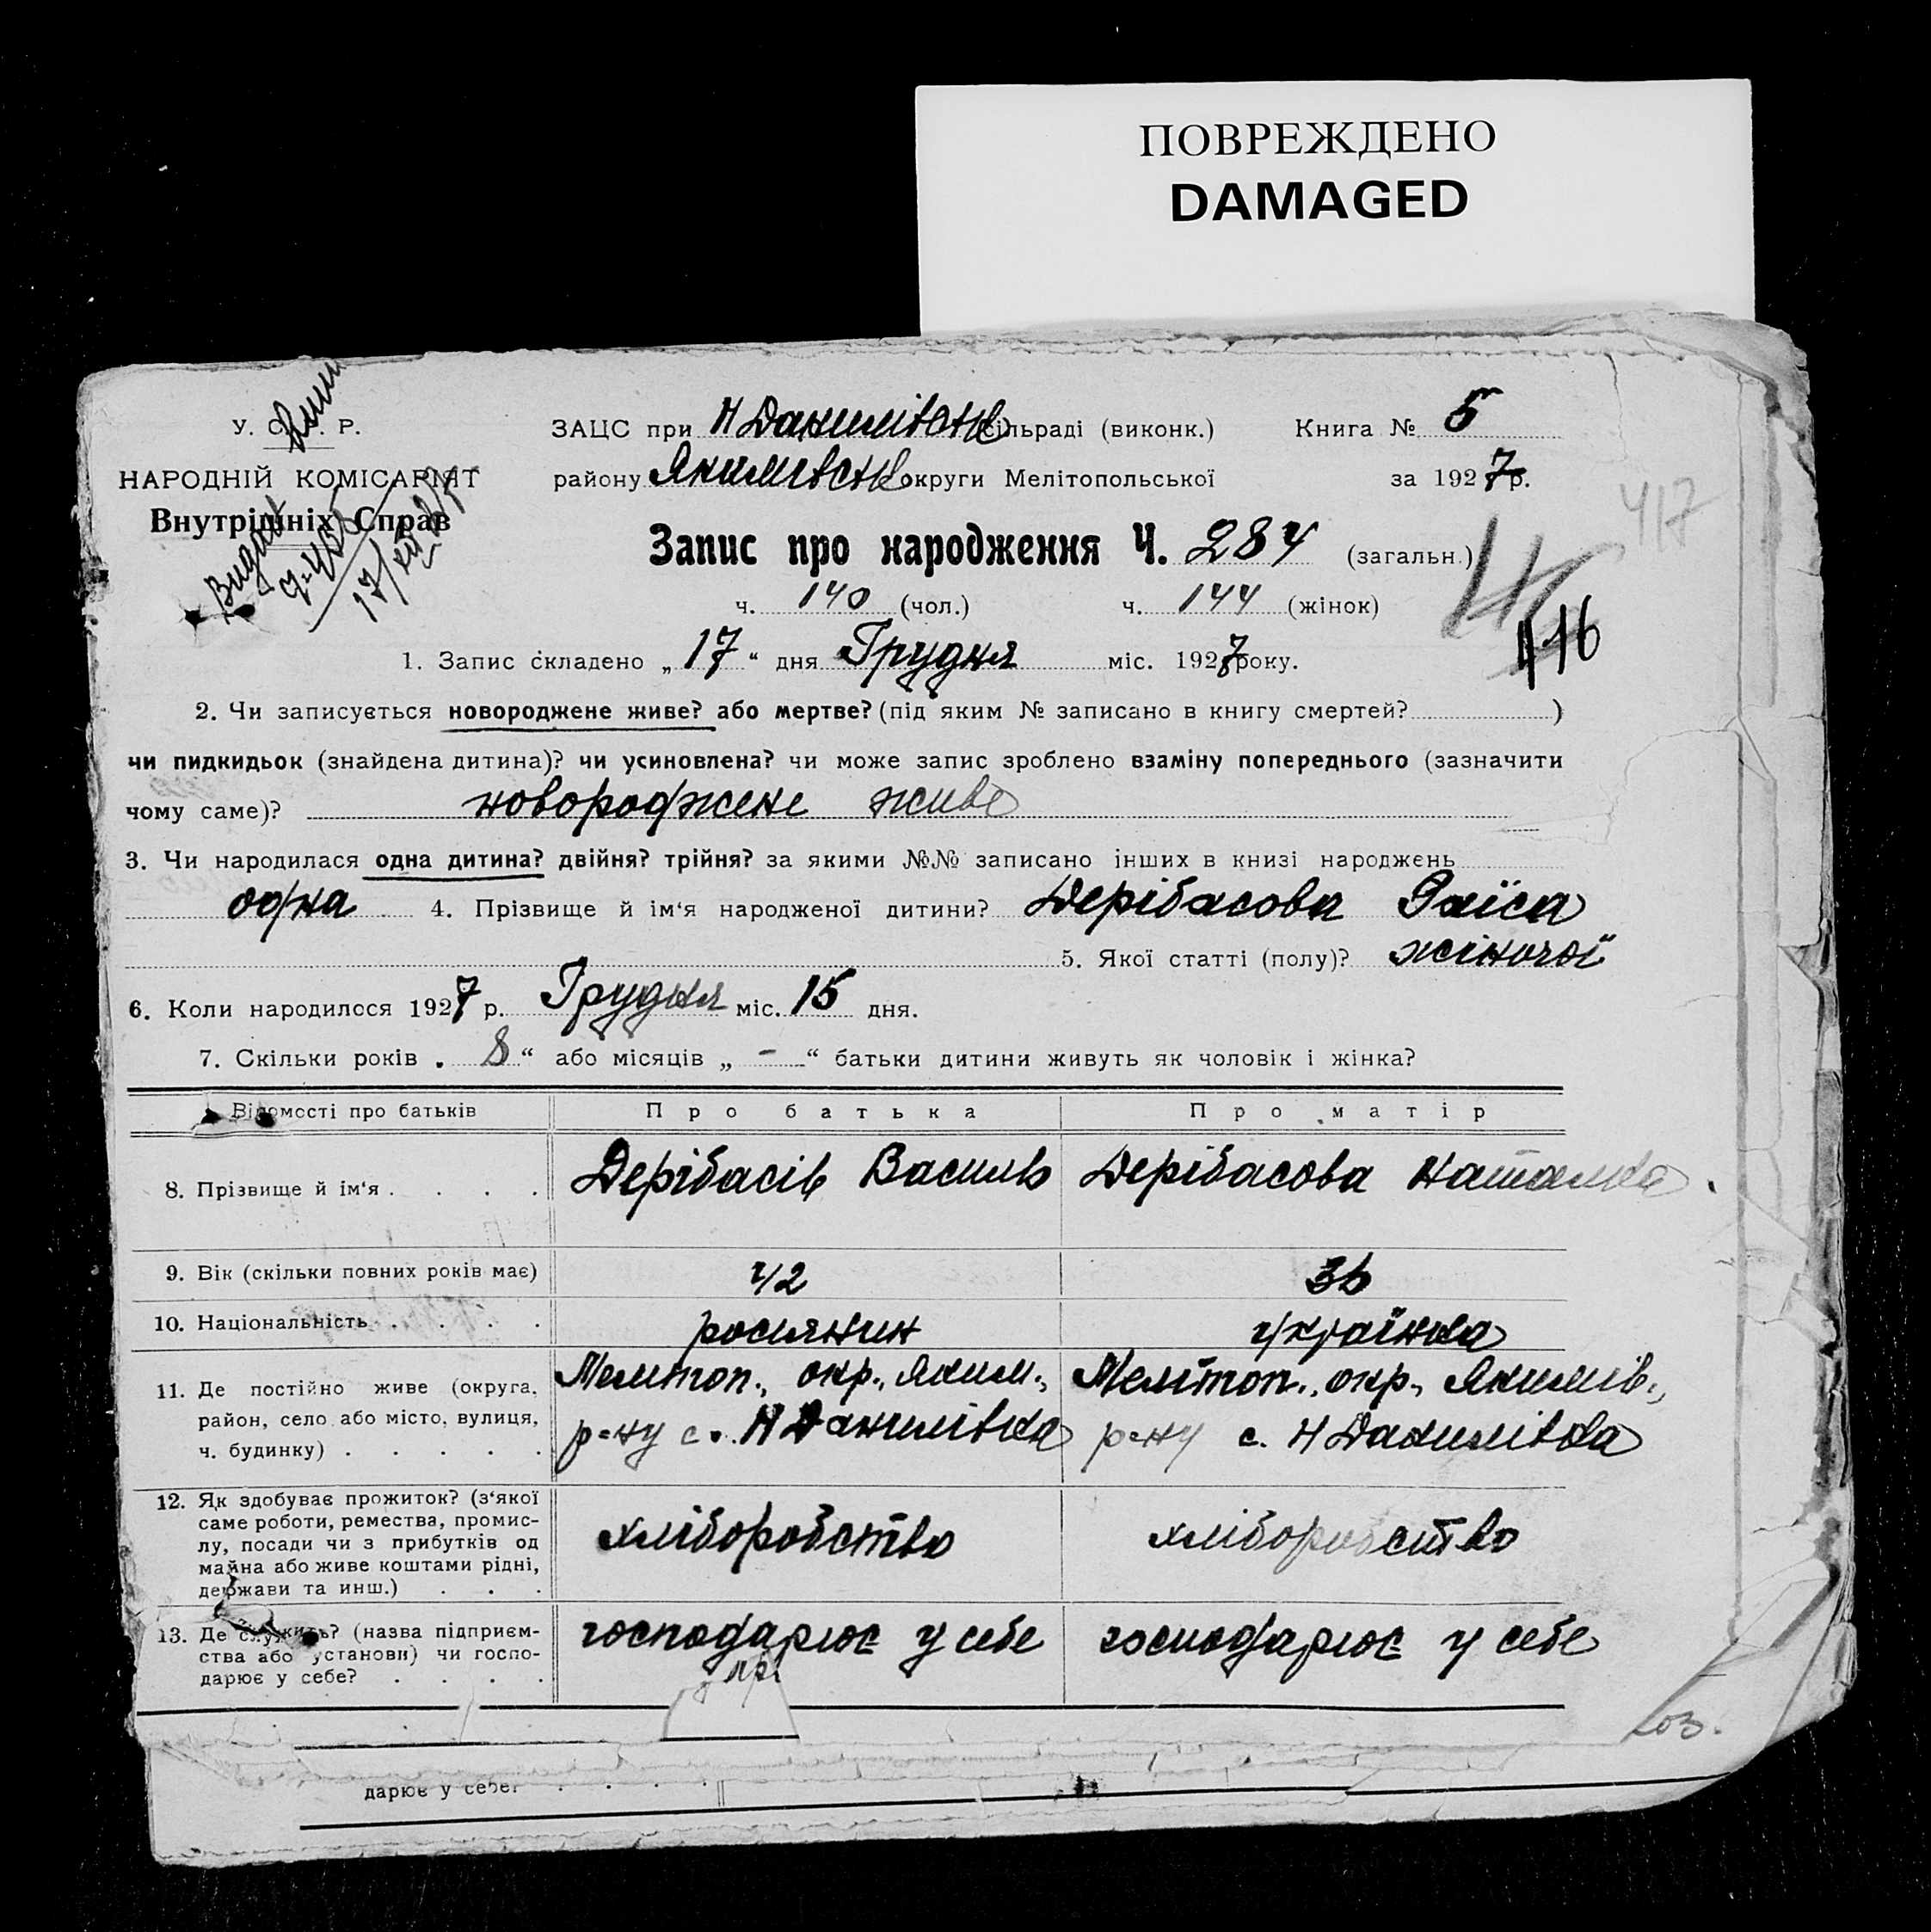 ПОВРЕЖДЕНО
DAMAGED
У. С. Р. Р.
НАРОДНІЙ КОМІСАРІЯТ
Внутрішніх Справ
ЗАЦС при Н Данилівськ сільраді (виконк.) Книга № 5
району Якимівськ округи Мелітопольської за 1927 р.
417
Запис про народження Ч. 284 (загальн.)
ч. 140 (чол.) ч. 144 (жінок)
416
1. Запис складено „17“ дня Грудня міс. 1927 року.
2. Чи записується новороджене живе? або мертве? (під яким № записано в книгу смертей? )
чи пидкидьок (знайдена дитина)? чи усиновлена? чи може запис зроблено взаміну попереднього (зазначити
чому саме)? новороджене живе
3. Чи народилася одна дитина? двійня? трійня? за якими №№ записано інших в книзі народжень
одна 4. Прізвище й ім‘я народженої дитини? Дерібасова Раїса
5. Якої статті (полу)? жіночої
6. Коли народилося 1927 р. Грудня міс. 15 дня.
7. Скільки років „ 8 “ або місяців „ - “ батьки дитини живуть як чоловік і жінка?
Відомості про батьків Про батька Про матір
8. Прізвище й ім‘я . . . . Дерібасів Василь Дерібасова Наталка
9. Вік (скільки повних років має) 42 36
10. Національність . . . . росиянин українка
11. Де постійно живе (округа, Мелітоп., окр., Яким., Мелітоп., окр., Якимів.,
район, село або місто, вулиця, р-ну с. Н Данилівка р-ну с. Н Данилівка
ч. будинку) . . . . .
12. Як здобуває прожиток? (з‘якої
саме роботи, ремества, промис-
лу, посади чи з прибутків од хліборобство хліборобство
майна або живе коштами рідні,
держави та инш.) . . .
13. Де служить? (назва підприєм- господарює у себе господарює у себе
ства або установи) чи госпо-
дарює у себе? . . . .
203.
дарює у себе? . . . .